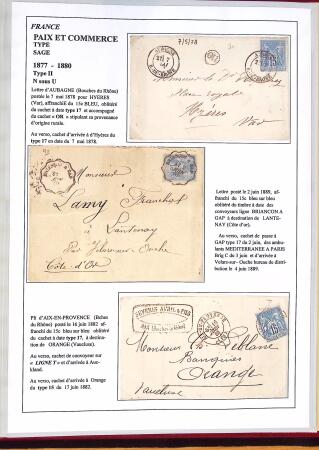 FRANCE
PAIX ET COMMERCE
TYPE
SAGE
1877 - 1880
Type II
N sous U
Lettre d'AUBAGNE (Bouches du Rhône)
postée le 7 mai 1878 pour HYERES
(Var), affranchie du 15c BLEU, oblitéré
du cachet à date type 17 et accompagné
du cachet « OR » stipulant sa provenance
d'origine rurale.
Au verso, cachet d'arrivée d'Hyères du
type 17 en date du 7 mai 1878.
7/5/78
Hyères
Var
Monsieur
Lamy Franchet
à Lantenay
Par Velars-sur-Ouche
Côte-d'Or
Lettre posté le 2 juin 1889, af-
franchi du 15c bleu sur bleu
oblitéré du timbre à date des
convoyeurs ligne BRIANCON A
GAP à destination de LANTE-
NAY (Côte d'or).
Au verso, cachet de passe à
GAP type 17 du 2 juin, des ambu-
lants MEDITERRANEE A PARIS
Brig C du 3 juin et d'arrivée à
Velars-sur- Ouche bureau de distribution
le 4 juin 1889.
Pli d'AIX-EN-PROVENCE (Bches
du Rhône) posté le 16 juin 1882 af-
franchi du 15c bleu sur bleu obli-
téré du cachet à date type 17, à
destination de ORANGE (Vaucluse).
Au verso, cachet de convoyeur sur
« LIGNE T » et d'arrivée à Auc-
kland.
Au verso, cachet d'arrivée à Orange
du type 18 du 17 juin 1882.
Monsieur Ch. Leblanc
Banquier
Orange
Vaucluse